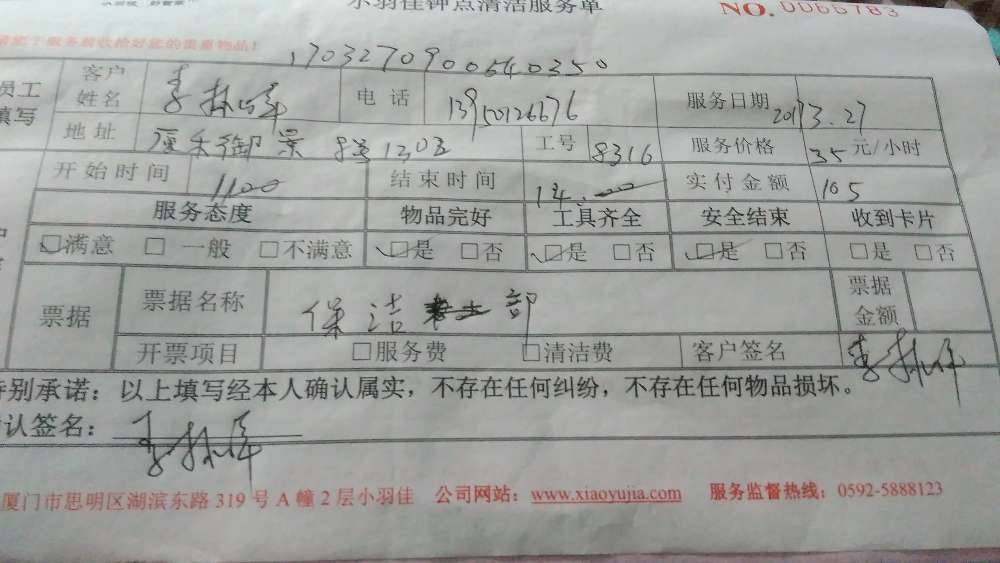 小羽佳钟点清洁服务单 NO. 0068783
170327090054 0350
员工填写 客户姓名 李林 电话 13950126676 服务日期 2017 3.27
地址 禾御景 1302 工号 8316 服务价格 35 元/小时
开始时间 1100 结束时间 14:00 实付金额 105
服务态度 物品完好 工具齐全 安全结束 收到卡片
☑满意 □ 一般 □不满意 ☑是 □否 ☑是 □否 ☑是 □否 □是 □否
票据 票据名称 保洁 部 票据金额
开票项目 □服务费 □清洁费 客户签名 李林
特别承诺：以上填写经本人确认属实，不存在任何纠纷，不存在任何物品损坏。
确认签名： 李林
厦门市思明区湖滨东路 319 号 A 幢 2 层小羽佳 公司网站：www.xiaoyujia.com 服务监督热线：0592-5888123